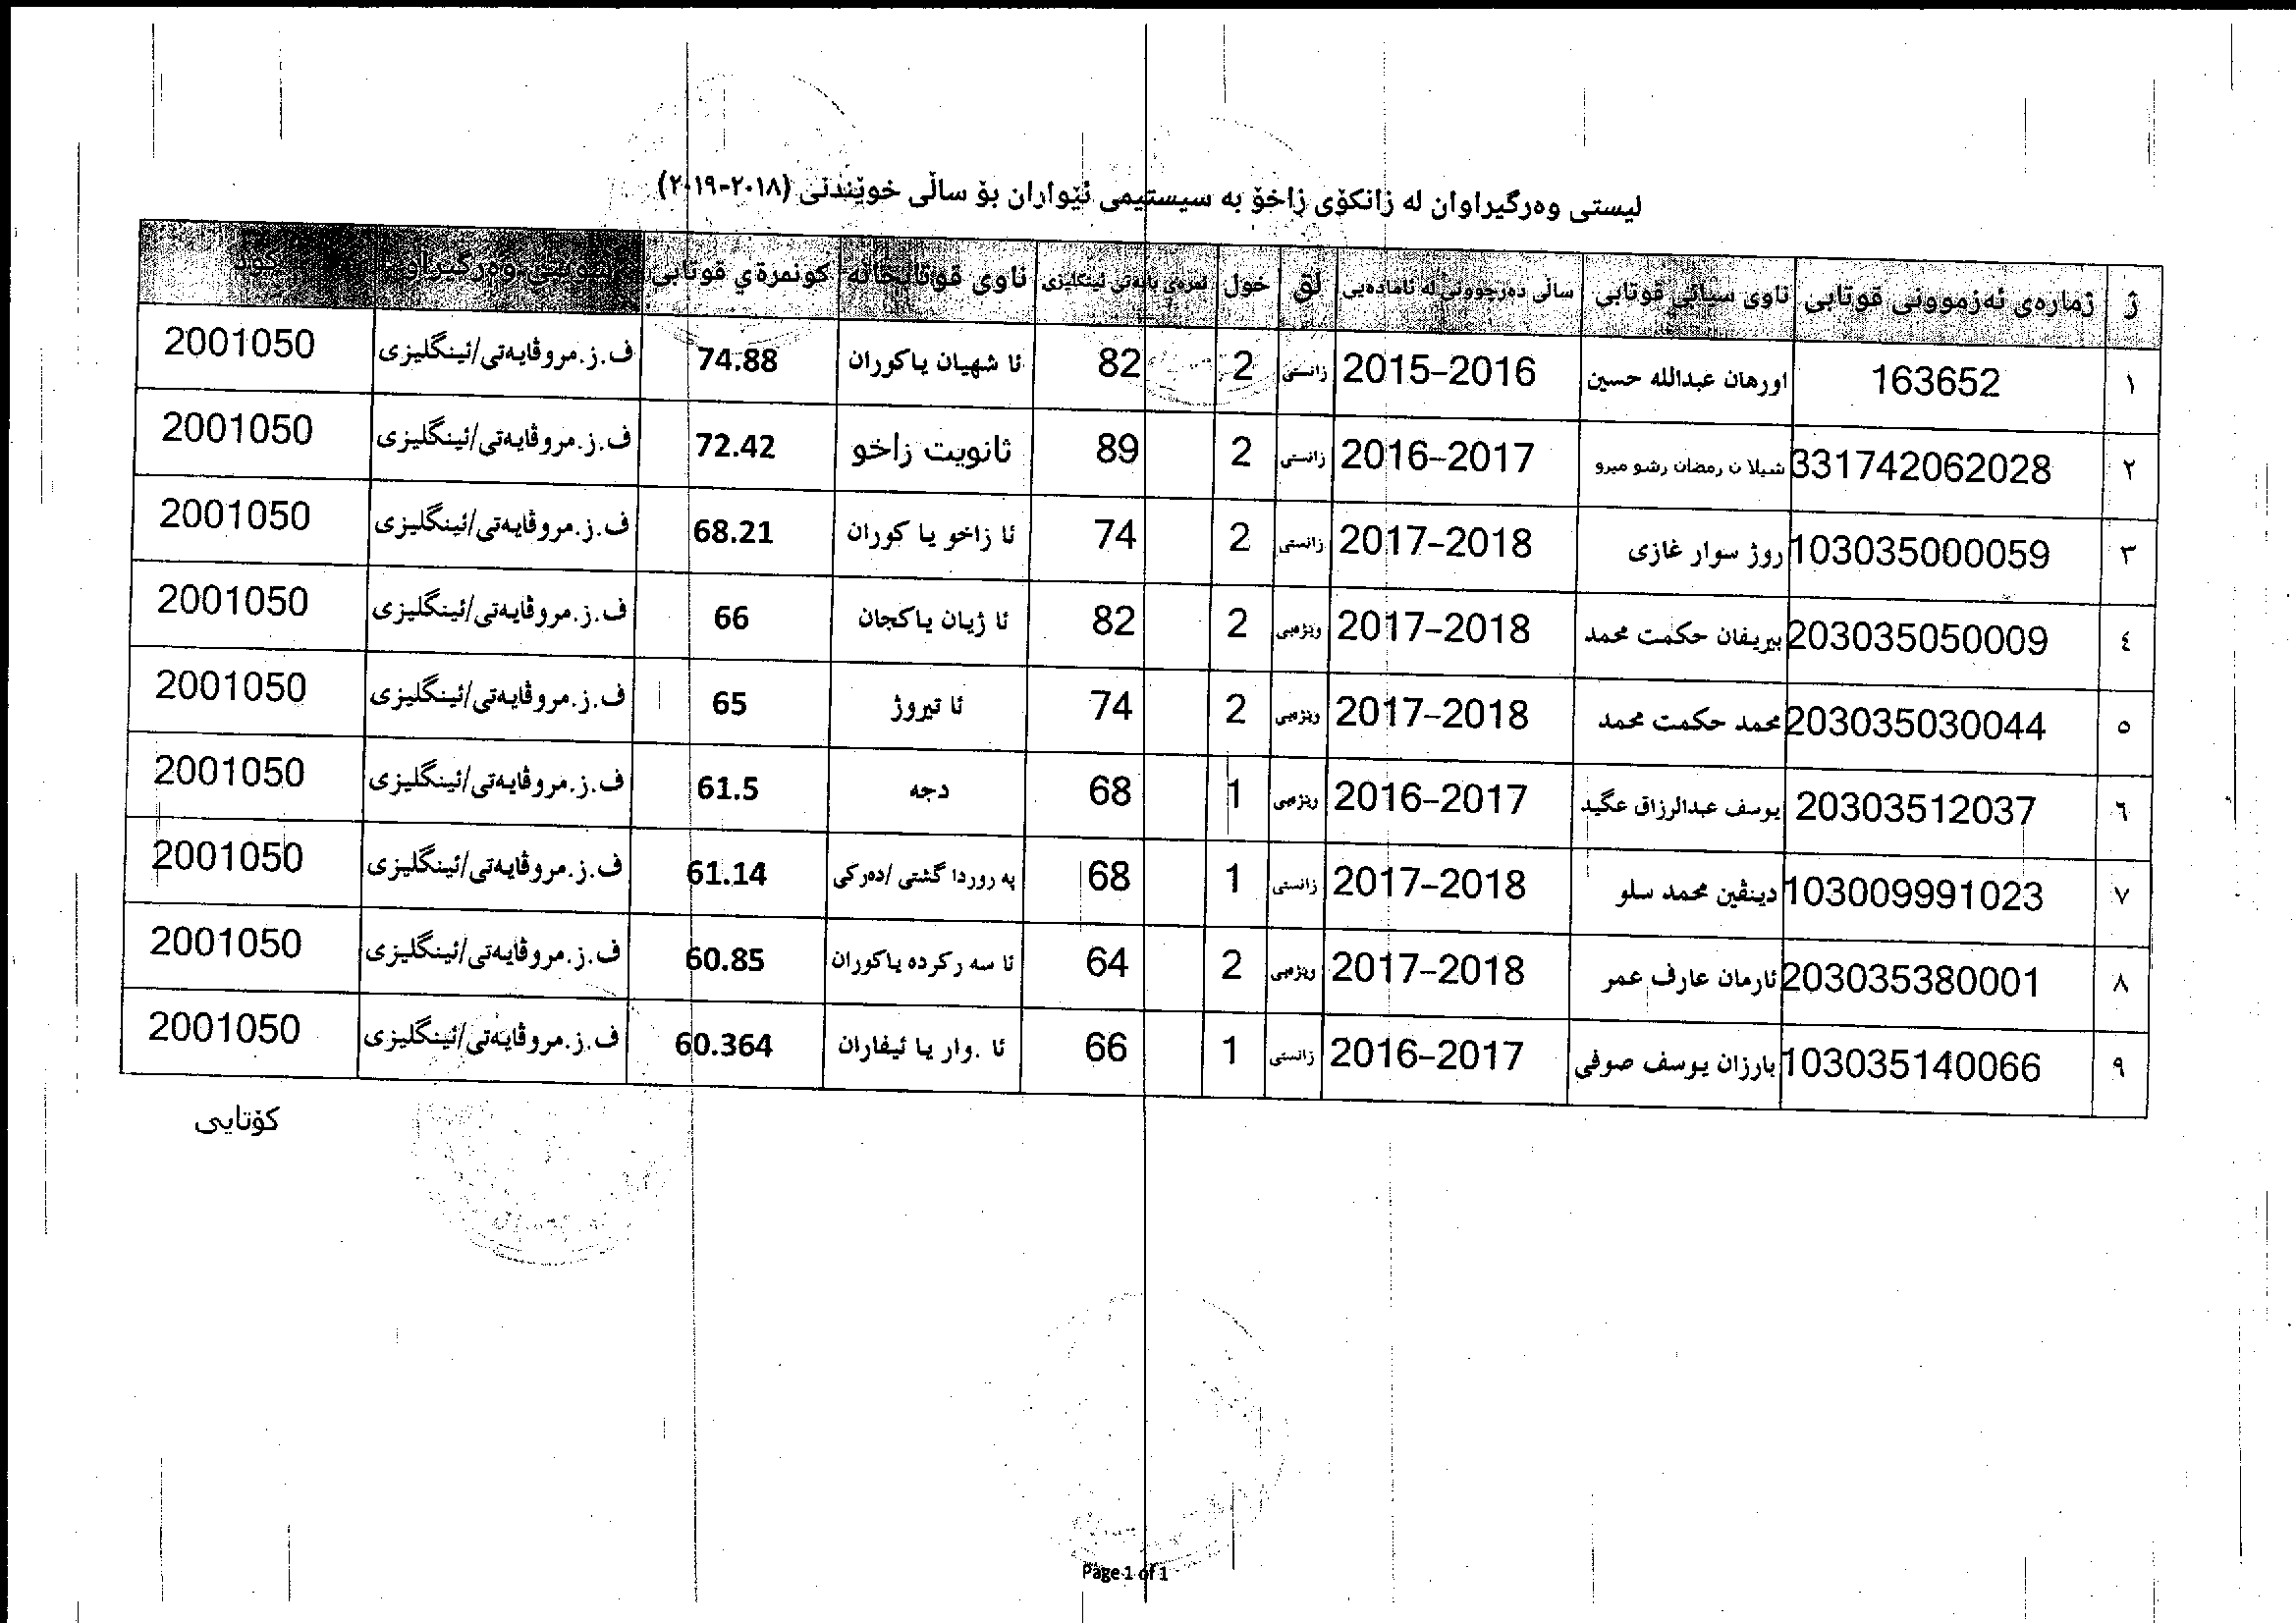 لیستی وەرگیراوان لە زانکۆی زاخۆ بە سیستیمی ئێواران بۆ ساڵی خوێندنی (٢٠١٨-٢٠١٩)
ژ ژمارەی ئەزموونی قوتابی ناوی سیانی قوتابی ساڵی دەرچوونی لە ئامادەیی لق خول نمرەی بابەتی ئینگلیزی ناوی قوتابخانە کونمرةي قوتابی وەرگیراو کۆد
١ 163652 اورهان عبدالله حسین 2015-2016 زانستی 2 82 ئا شهیان یاکوران 74.88 ف.ز.مروڤایەتی/ئینگلیزی 2001050
٢ 331742062028 شیلان رمضان رشو میرو 2016-2017 زانستی 2 89 ثانویت زاخو 72.42 ف.ز.مروڤایەتی/ئینگلیزی 2001050
٣ 103035000059 روژ سوار غازی 2017-2018 زانستی 2 74 ئا زاخو یا کوران 68.21 ف.ز.مروڤایەتی/ئینگلیزی 2001050
٤ 203035050009 بیریفان حکمت محمد 2017-2018 ویژەیی 2 82 ئا ژیان یاکجان 66 ف.ز.مروڤایەتی/ئینگلیزی 2001050
٥ 203035030044 محمد حکمت محمد 2017-2018 ویژەیی 2 74 ئا تیروژ 65 ف.ز.مروڤایەتی/ئینگلیزی 2001050
٦ 20303512037 یوسف عبدالرزاق عگید 2016-2017 ویژەیی 1 68 دجە 61.5 ف.ز.مروڤایەتی/ئینگلیزی 2001050
٧ 103009991023 دینڤین محمد سلو 2017-2018 زانستی 1 68 پە روردا گشتی /دەرکی 61.14 ف.ز.مروڤایەتی/ئینگلیزی 2001050
٨ 203035380001 ئارمان عارف عمر 2017-2018 ویژەیی 2 64 ئا سە رکردە یاکوران 60.85 ف.ز.مروڤایەتی/ئینگلیزی 2001050
٩ 103035140066 بارزان یوسف صوفی 2016-2017 زانستی 1 66 ئا .وار یا ئیفاران 60.364 ف.ز.مروڤایەتی/ئینگلیزی 2001050
کۆتایی
Page 1 of 1